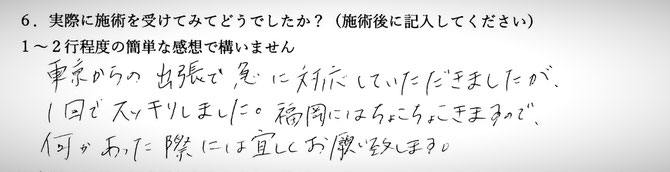 ６．実際に施術を受けてみてどうでしたか？（施術後に記入してください）
１～２行程度の簡単な感想で構いません
東京からの出張で急に対応していただきましたが、
1回でスッキリしました。福岡にはちょこちょこきますので、
何かあった際には宜しくお願い致します。